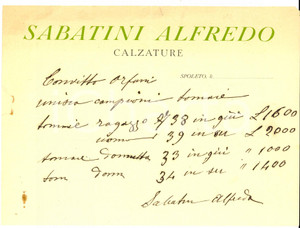 SABATINI ALFREDO
CALZATURE
SPOLETO, li
Convitto Orfani
unisco campioni tomaie
tomaie ragazzo 38 in giù £ 1600
uomo 39 in su £ 2000
tomaie donnetta 33 in giù " 1000
tom donna 34 in su " 1400
Sabatini Alfredo